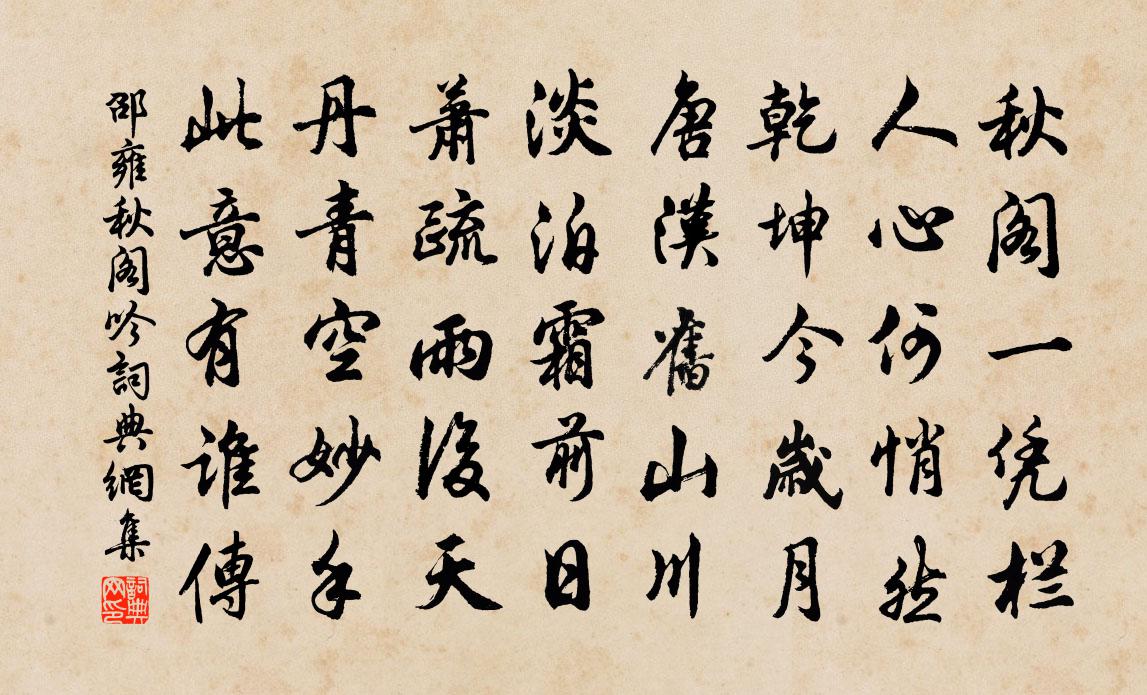 秋阁一凭栏
人心何悄然
乾坤今歲月
唐漢舊山川
淡泊霜前日
蕭疏雨後天
丹青空妙手
此意有誰傳
邵雍秋阁吟詞典網集
詞典网印